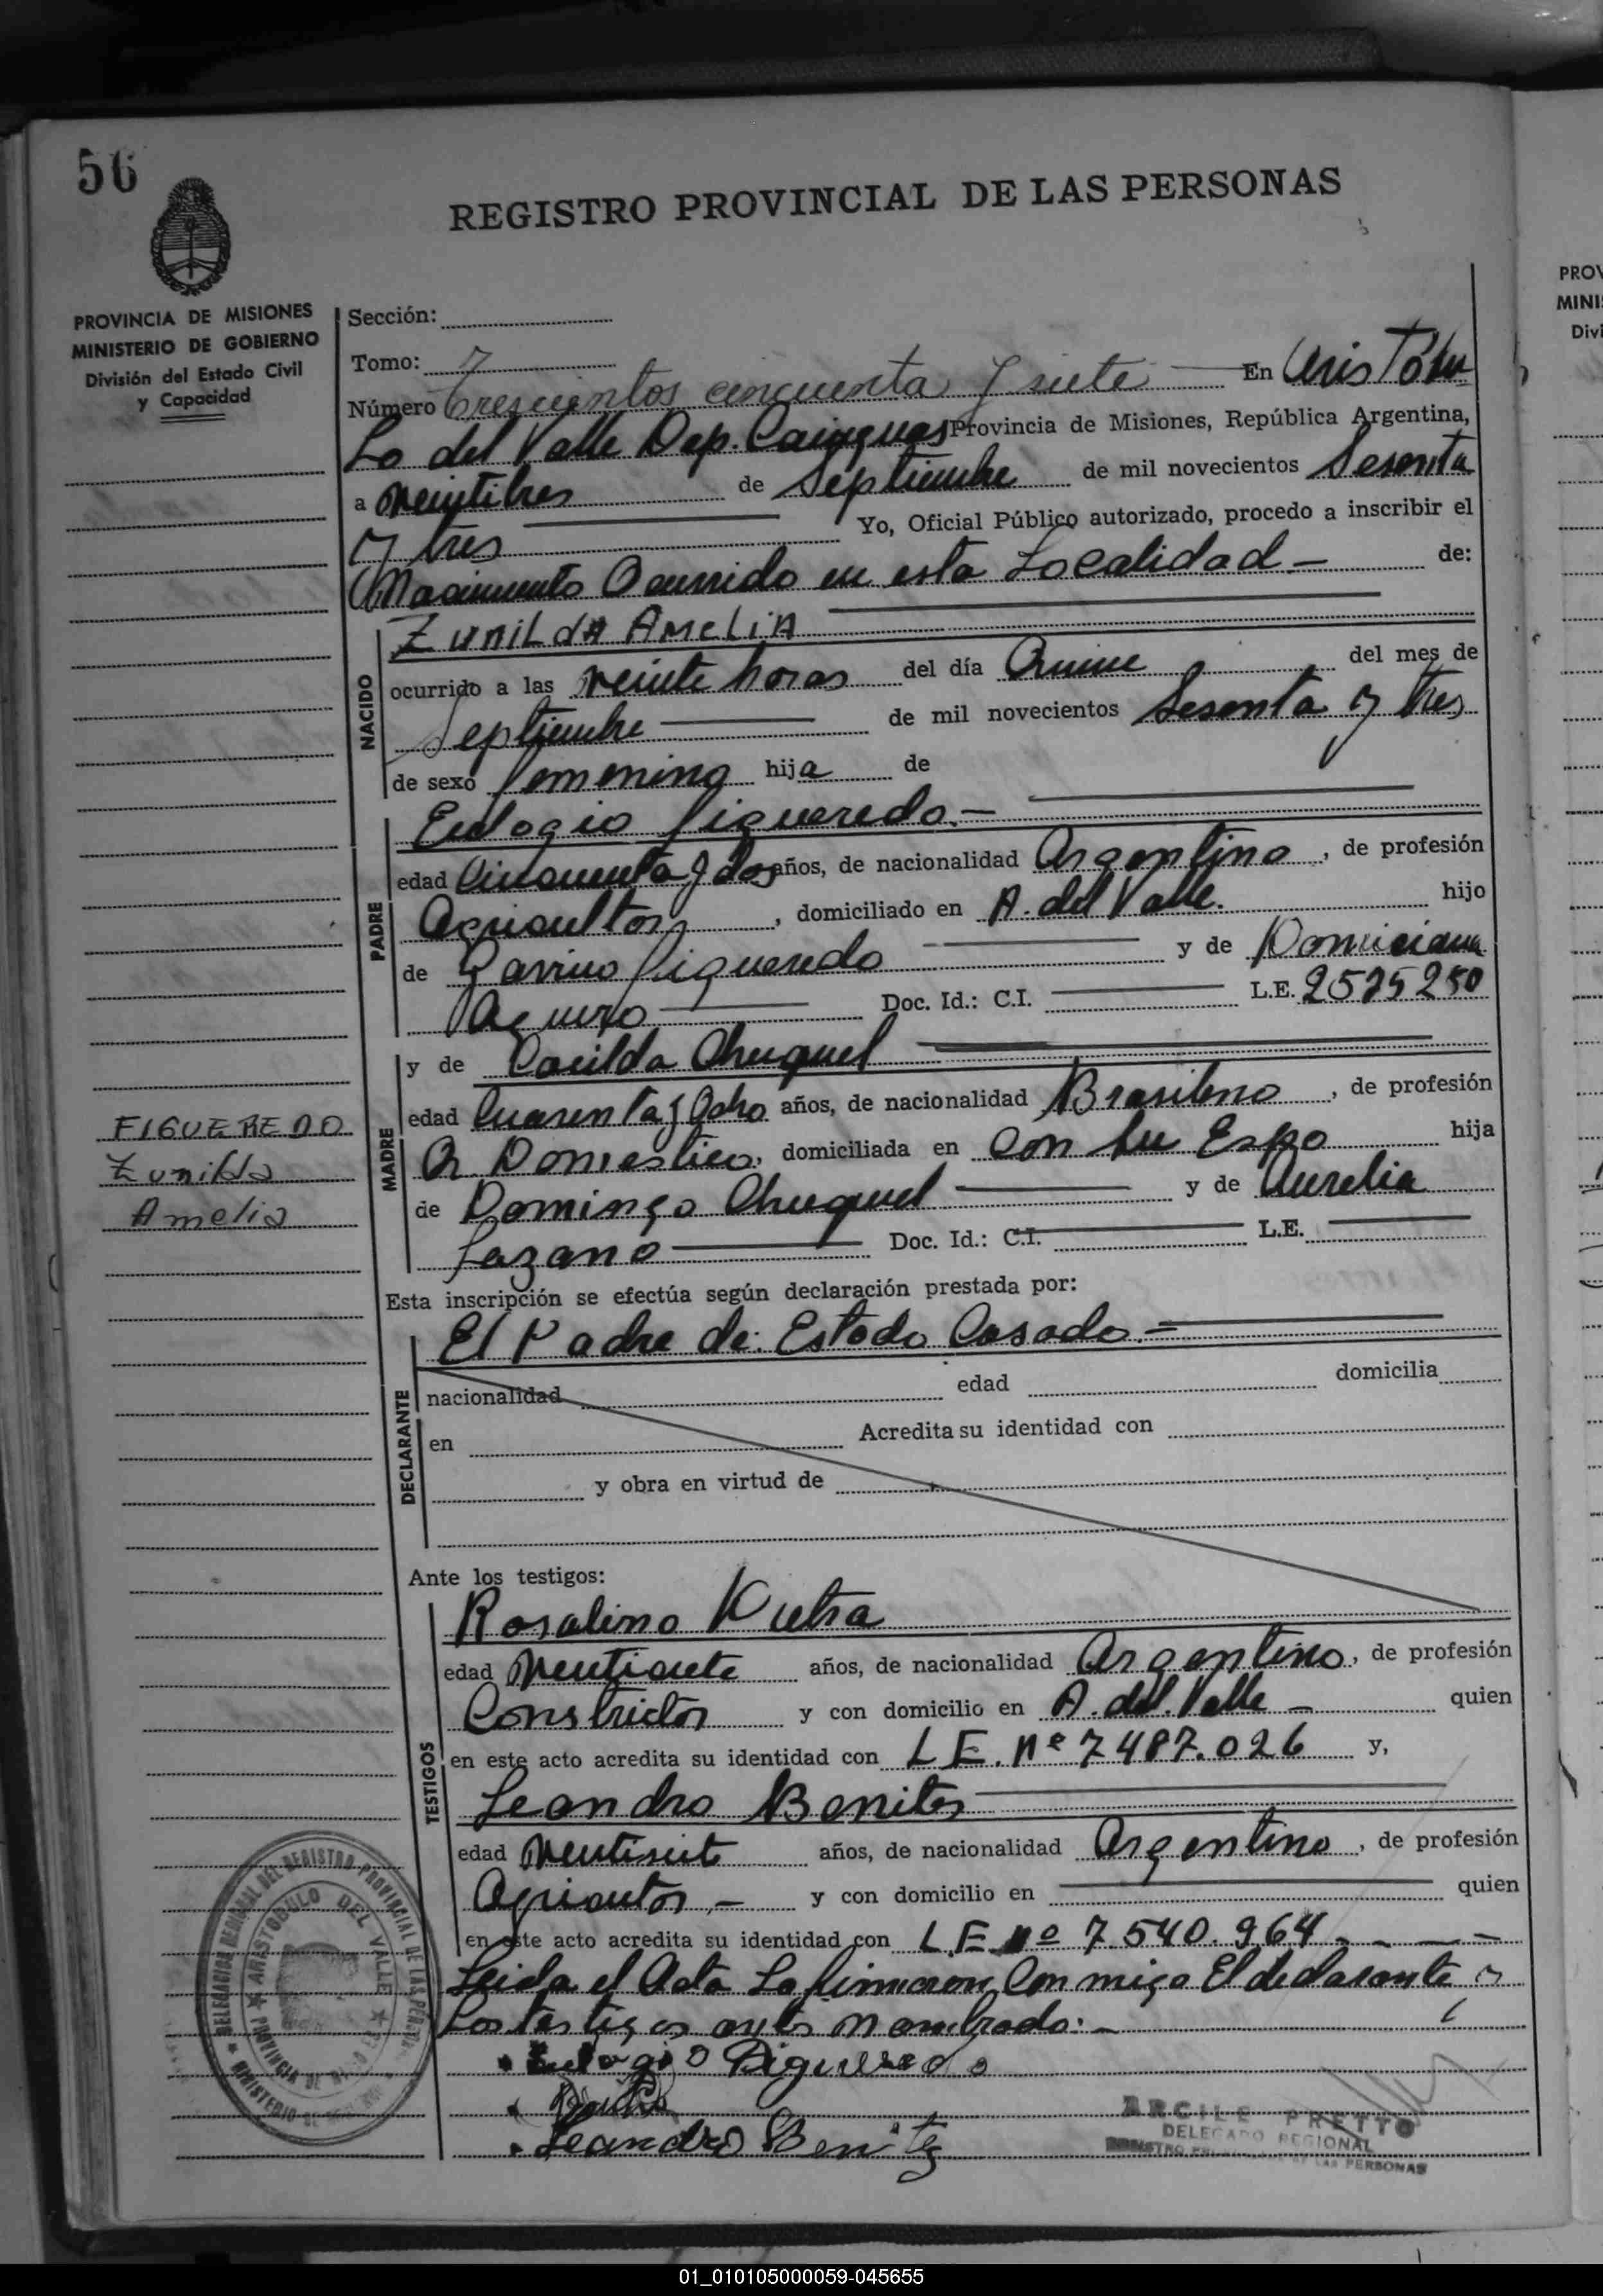 56
REGISTRO PROVINCIAL DE LAS PERSONAS
PROVINCIA DE MISIONES
MINISTERIO DE GOBIERNO
División del Estado Civil
y Capacidad
Sección:
Tomo: 7
Número Trescientos cincuenta y siete En Aristóbu
Lo del Valle Dep. Cainguas Provincia de Misiones, República Argentina,
a veintitres de Septiembre de mil novecientos Sesenta
y tres Yo, Oficial Público autorizado, procedo a inscribir el
Nacimiento Ocurrido en esta Localidad - de:
NACIDO
ZUNILdA AMELIA
ocurrido a las veinte horas del día Quince del mes de
Septiembre de mil novecientos Sesenta y tres
de sexo femenino hija de
PADRE
Eulogio figueredo.-
edad Cincuenta y dos años, de nacionalidad Argentino, de profesión
Agricultor, domiciliado en A. del Valle. hijo
de figueredo y de Domiciana
Aguero Doc. Id.: C.I. L.E. 2575250
MADRE
y de Casilda Chuquel
edad Cuarenta y Ocho años, de nacionalidad Brasileno, de profesión
Q. Domestico, domiciliada en Con Su Espo hija
de Domingo Chuquel y de Aurelia
Lazano Doc. Id.: C.I. L.E.
FIGUEREDO
Zunilda
Amelia
Esta inscripción se efectúa según declaración prestada por:
DECLARANTE
El Padre de: Estado Casado.-
nacionalidad edad domicilia
en Acredita su identidad con
y obra en virtud de
Ante los testigos:
TESTIGOS
Rosalino
edad Ventisiete años, de nacionalidad Argentino, de profesión
Constrictor y con domicilio en A. del. Valle - quien
en este acto acredita su identidad con L E. Nº 7487.026 y,
Leandro Benites
edad Ventisiete años, de nacionalidad Argentino, de profesión
Agricutor,- y con domicilio en quien
en este acto acredita su identidad con L.E. Nº 7.540.964
Leida el Acta La firmaron Con migo El declarante y
Los testigos antes nombrado:-
Eulogio Figueredo
Leandro Benitez
DELEGACION REGIONAL DEL REGISTRO PROVINCIAL DE LAS PERSONAS
ARISTOBULO DEL VALLE
ARCILE PRETTO
DELEGADO REGIONAL
PERSONAS
PROV
MINI
Divi
01_010105000059-045655